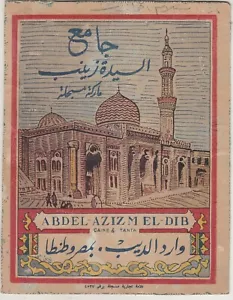 جامع
السيدة زينب
ماركة مسجلة
ABDEL-AZIZ M EL-DIB
CAIRO & TANTA
وارد الديب، بمصر وطنطا
علامة تجارية مسجلة